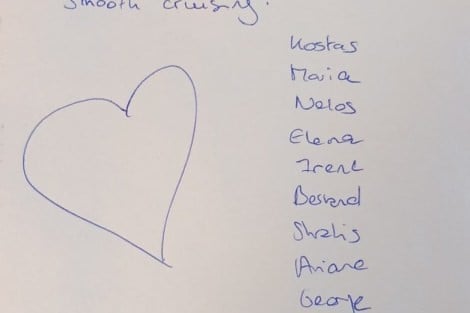 Smooth cruising!
Kostas
Maria
Nelos
Elena
Irene
Stratis
Ariane
George